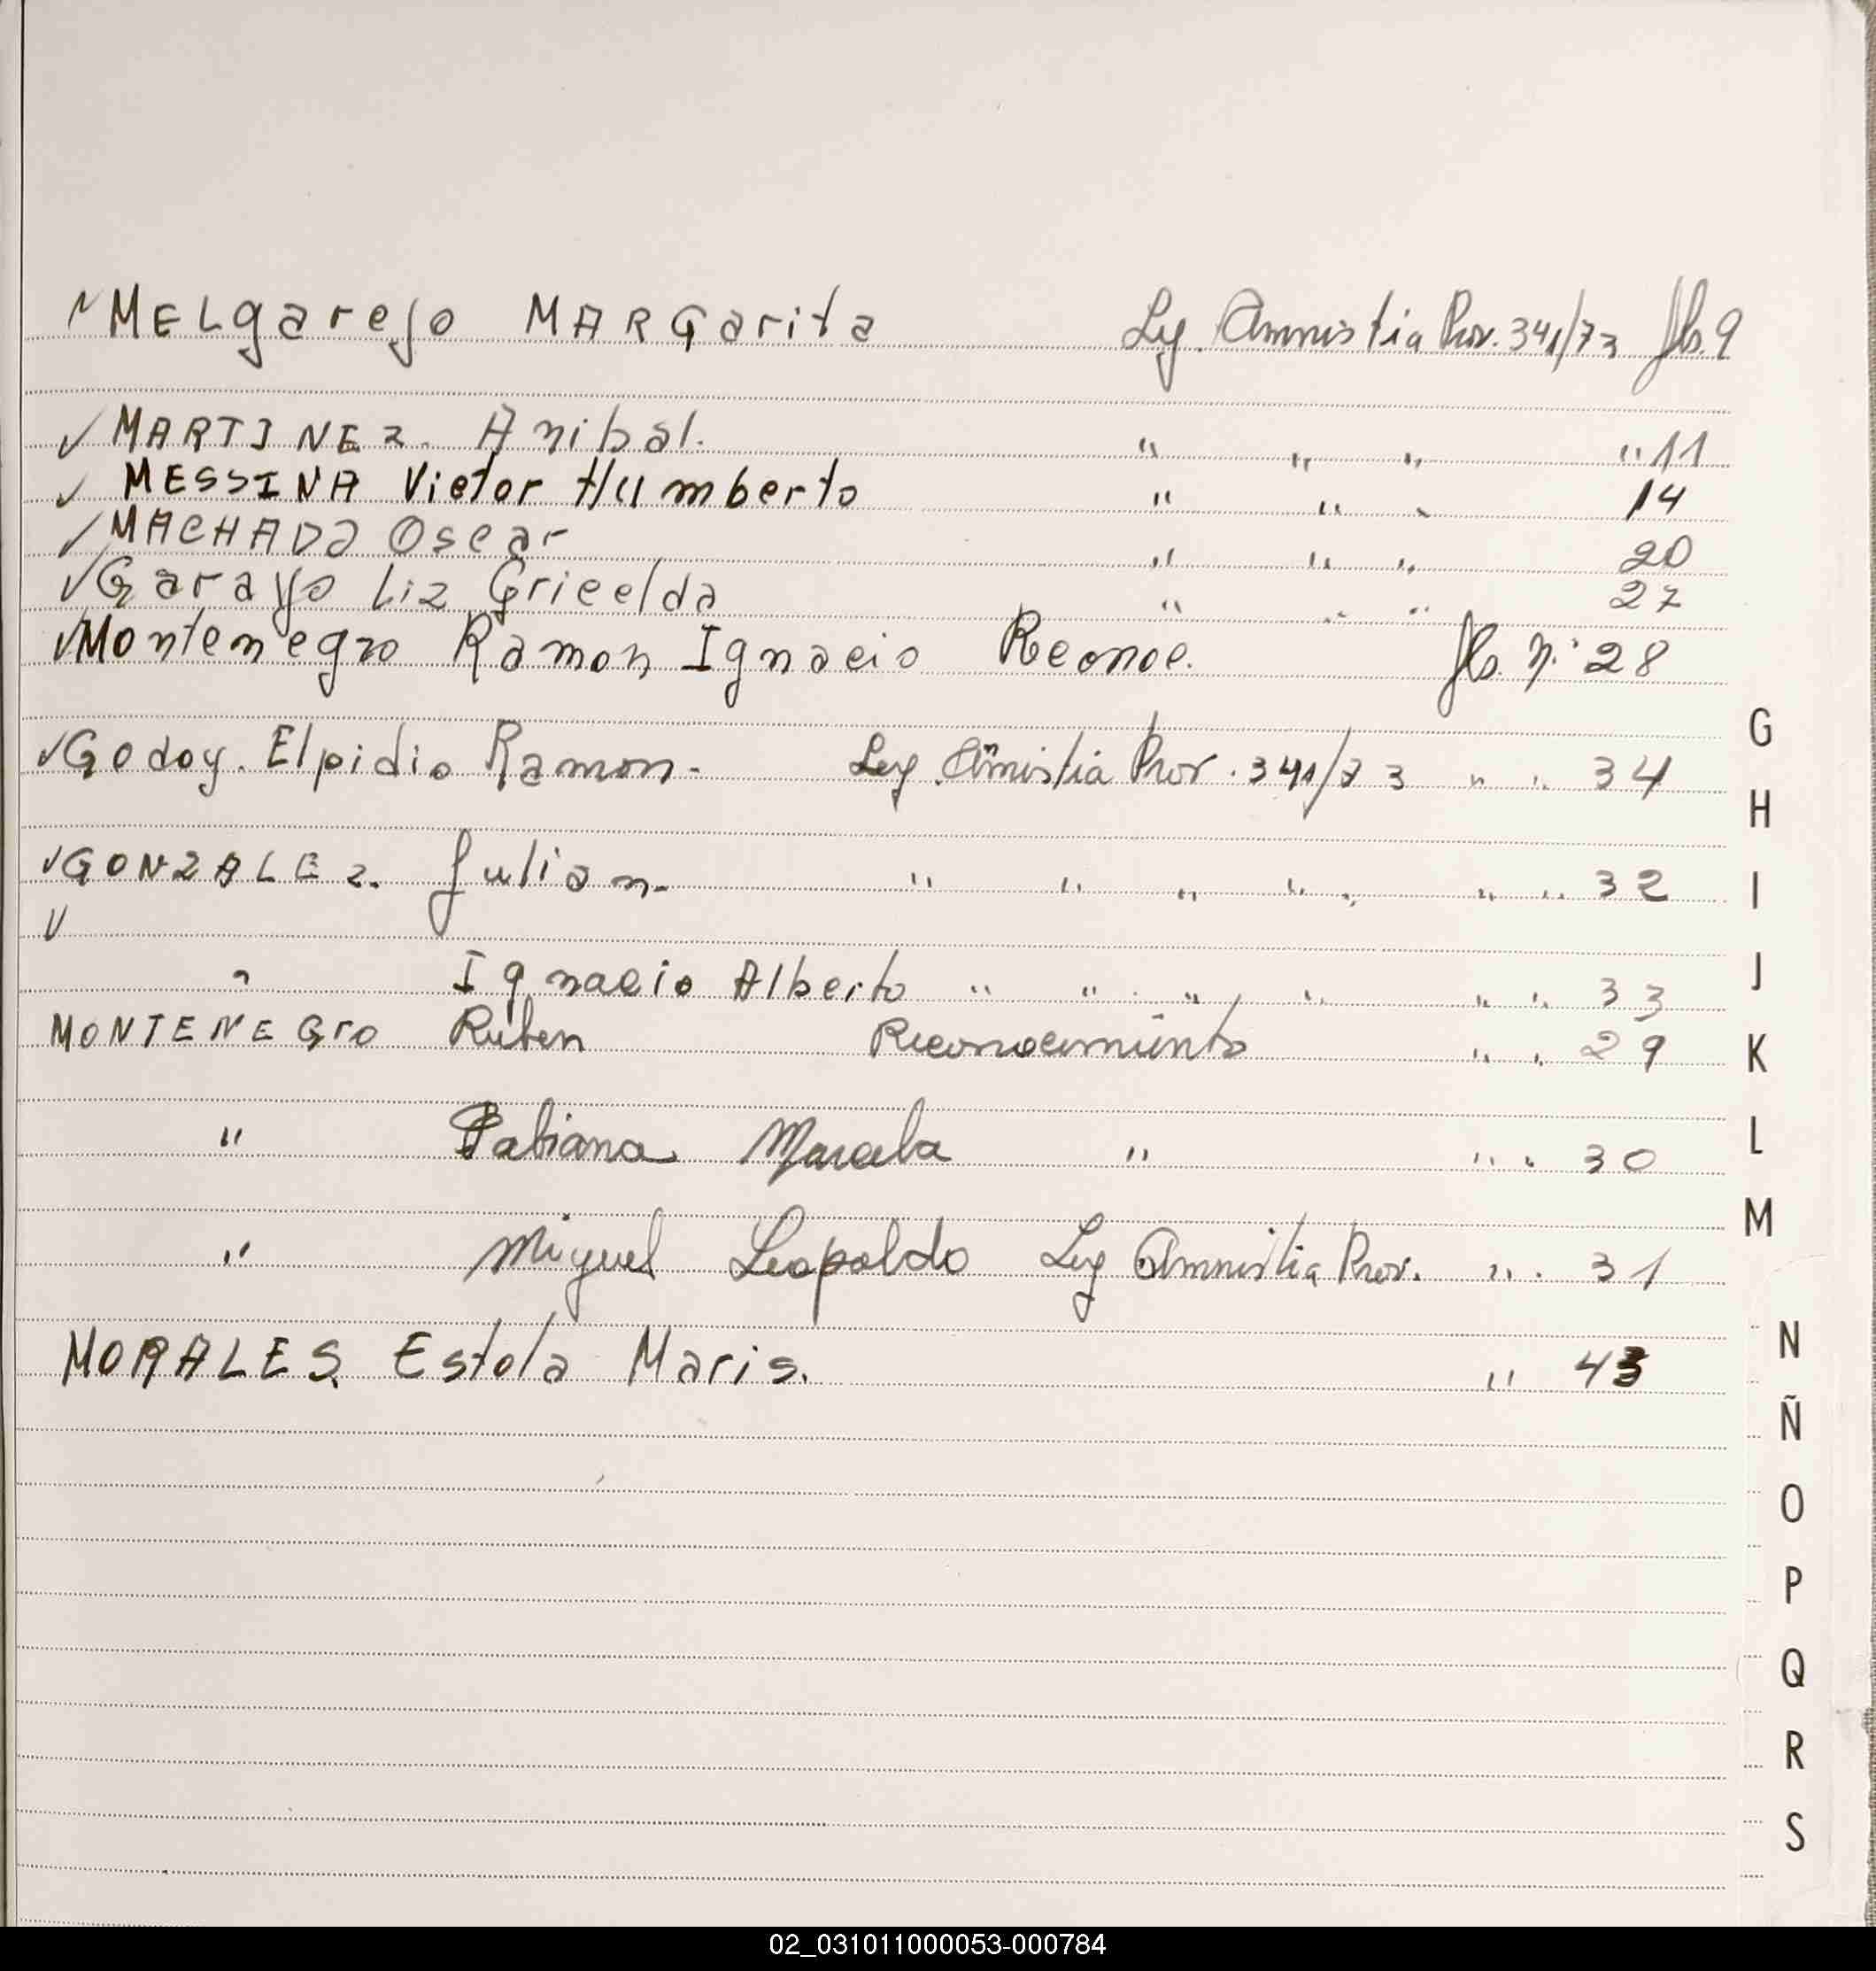 ✓ MELgarejo MARGarita Ley. Amnistia Prov. 341/73 flo. 9
✓ MARTINEZ. Anibal. " " " " 11
✓ MESSINA Victor Humberto " " " 14
✓ MACHADO Oscar " " " 20
✓ Garayo Liz Gricelda " " " 27
✓ Montenegro Ramon Ignacio Reconoc. flo. Nº 28
G
✓ Godoy. Elpidio Ramon. Ley. Amistia Prov. 341/73 " " 34
H
✓ GONZALEZ. Julian. " " " " " " 32
I
✓
" Ignacio Alberto " " " " " " 33
J
MONTENEGro Ruben Reconocimiento " " 29
K
" Fabiana Marcela " " " 30
L
M
" Miguel Leopoldo Ley Amnistia Prov. " " 31
N
MORALES. Estela Maris. " 43
Ñ
O
P
Q
R
S
02_031011000053-000784